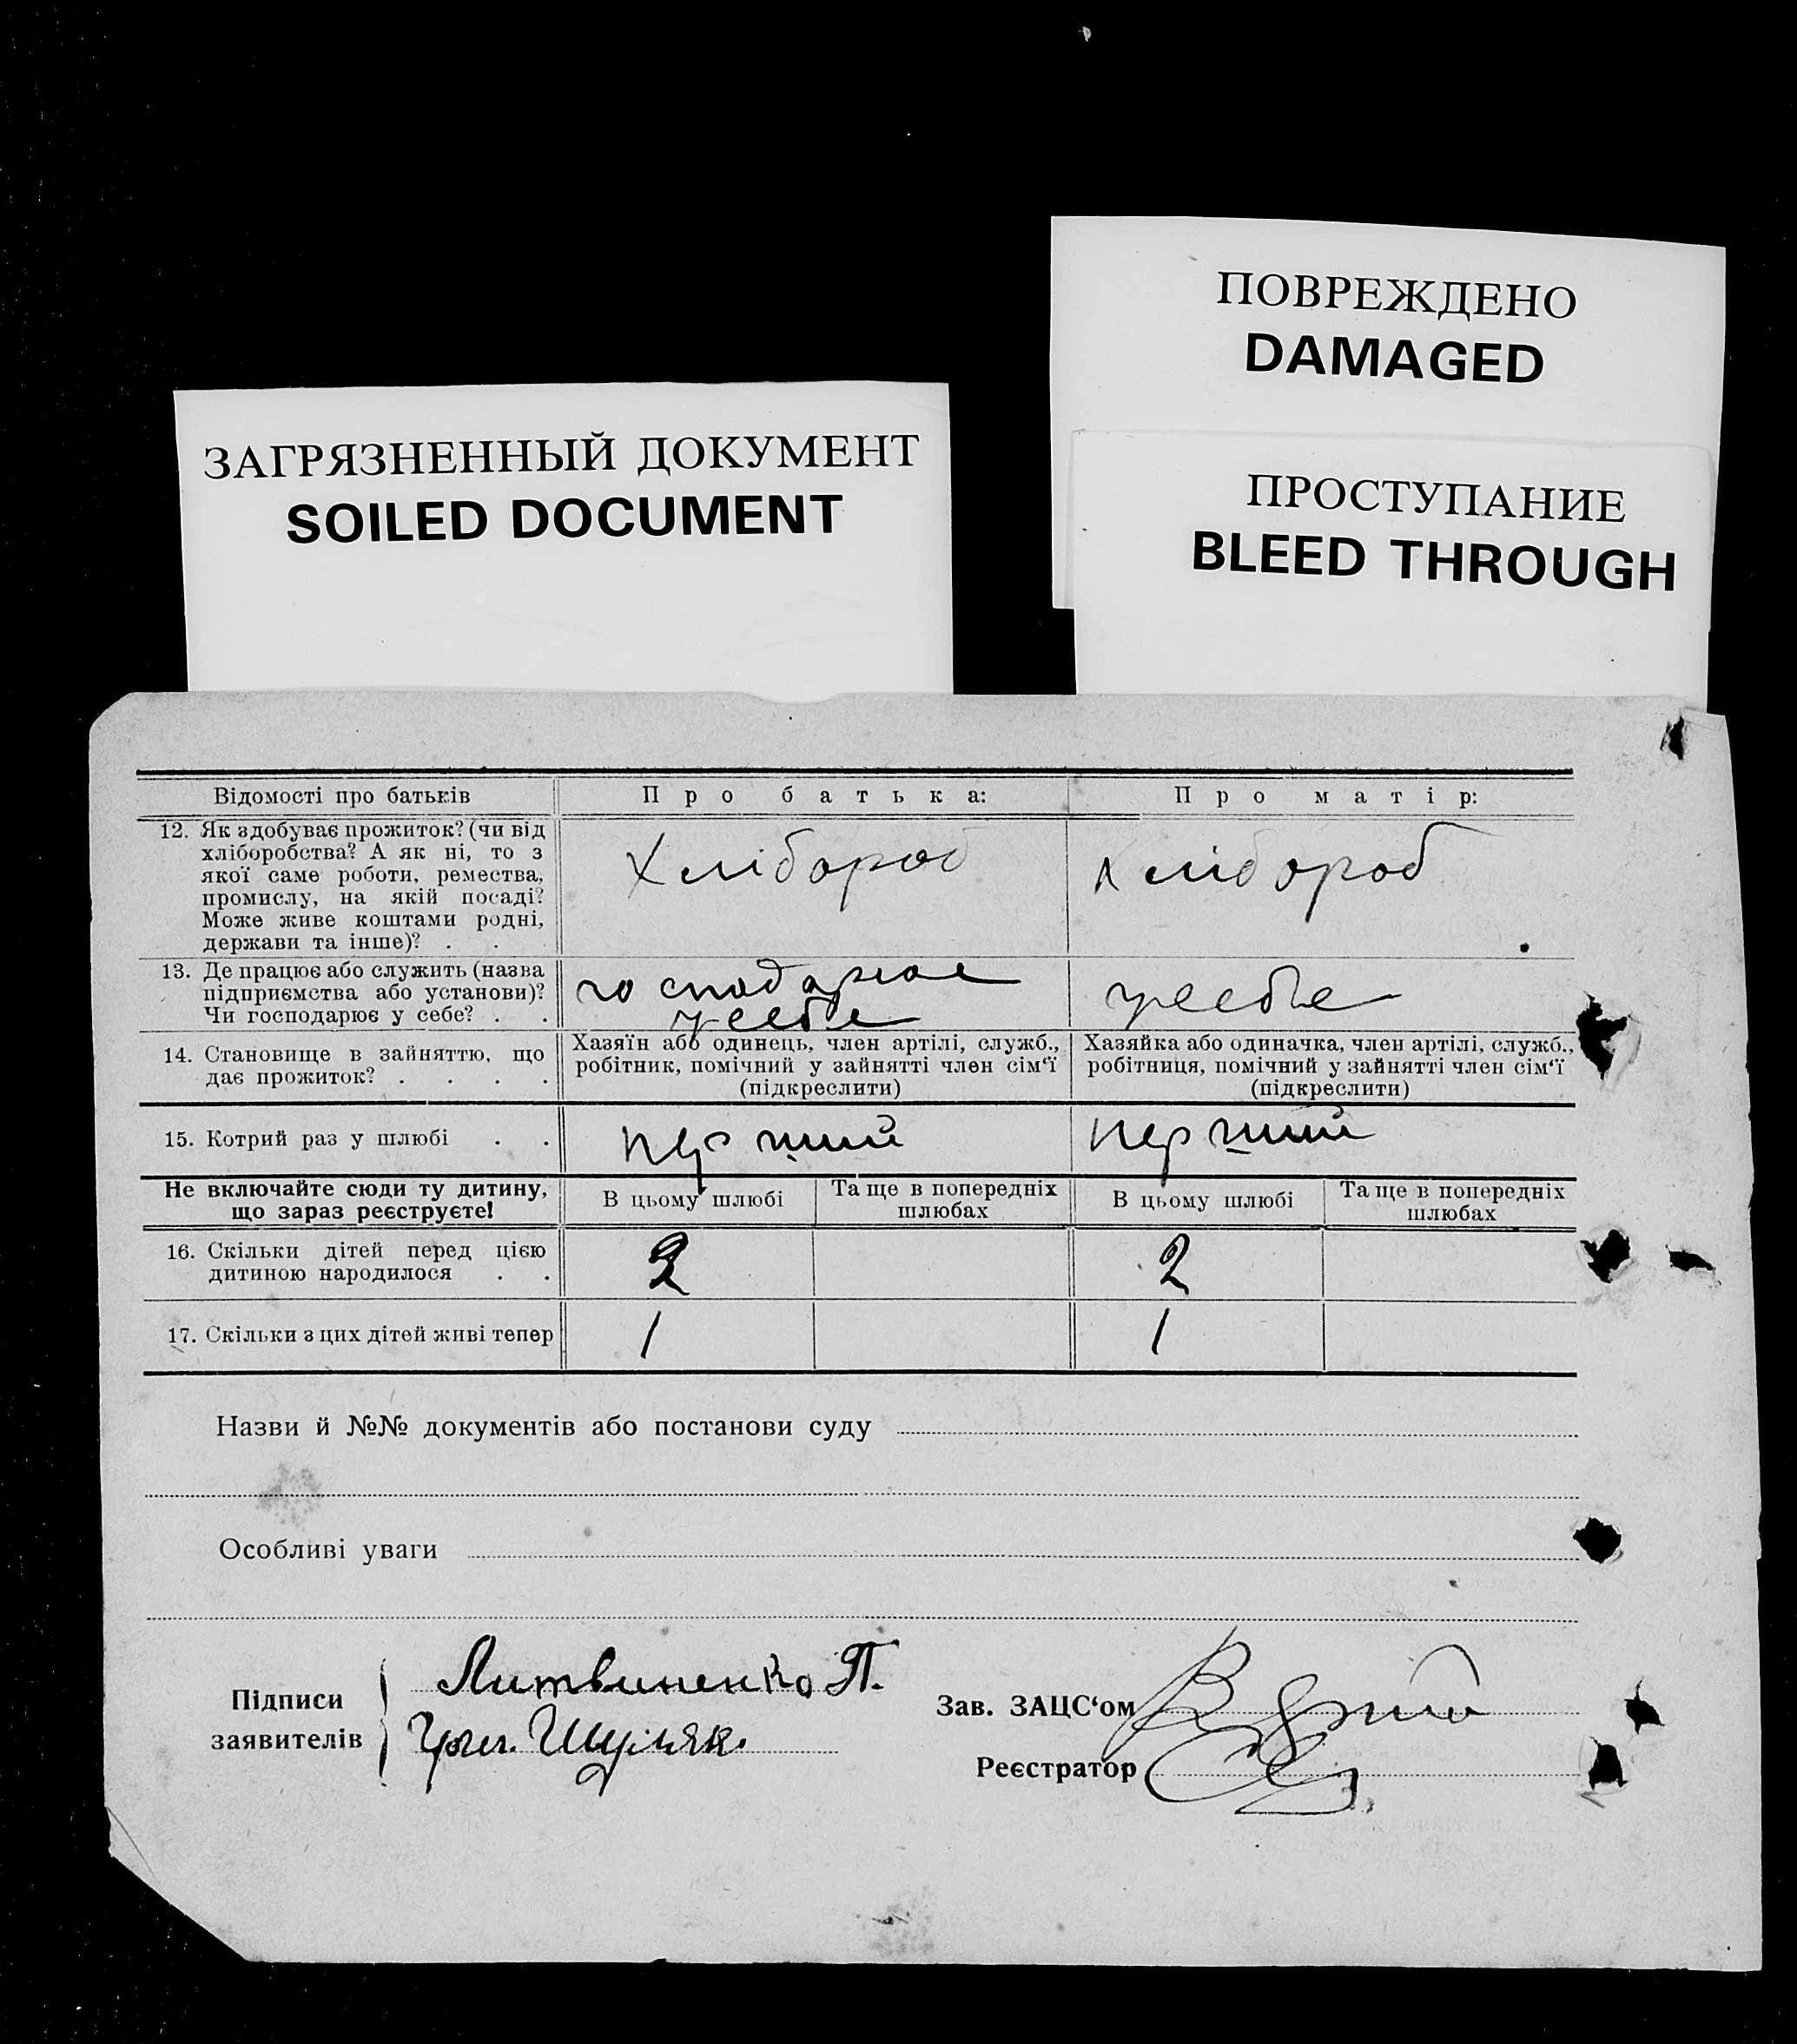 ПОВРЕЖДЕНО
DAMAGED
ЗАГРЯЗНЕННЫЙ ДОКУМЕНТ
SOILED DOCUMENT
ПРОСТУПАНИЕ
BLEED THROUGH
Відомості про батьків
Про батька:
Про матір:
12. Як здобуває прожиток? (чи від
хліборобства? А як ні, то з
якої саме роботи, ремества,
промислу, на якій посаді?
Може живе коштами родні,
держави та інше)? . .
Хлібороб
Хлібороб
13. Де працює або служить (назва
підприємства або установи)?
Чи господарює у себе? . .
господарює
усебе
усебе
14. Становище в зайняттю, що
дає прожиток? . . . .
Хазяїн або одинець, член артілі, служб.,
робітник, помічний у зайнятті член сім‘ї
(підкреслити)
Хазяйка або одиначка, член артілі, служб.,
робітниця, помічний у зайнятті член сім‘ї
(підкреслити)
15. Котрий раз у шлюбі . .
перший
перший
Не включайте сюди ту дитину,
що зараз реєструєте!
В цьому шлюбі
Та ще в попередніх
шлюбах
В цьому шлюбі
Та ще в попередніх
шлюбах
16. Скільки дітей перед цією
дитиною народилося . .
2
2
17. Скільки з цих дітей живі тепер
1
1
Назви й №№ документів або постанови суду
Особливі уваги
Підписи
заявителів
Литвиненко П.
Шуляк.
Зав. ЗАЦС‘ом
Реєстратор